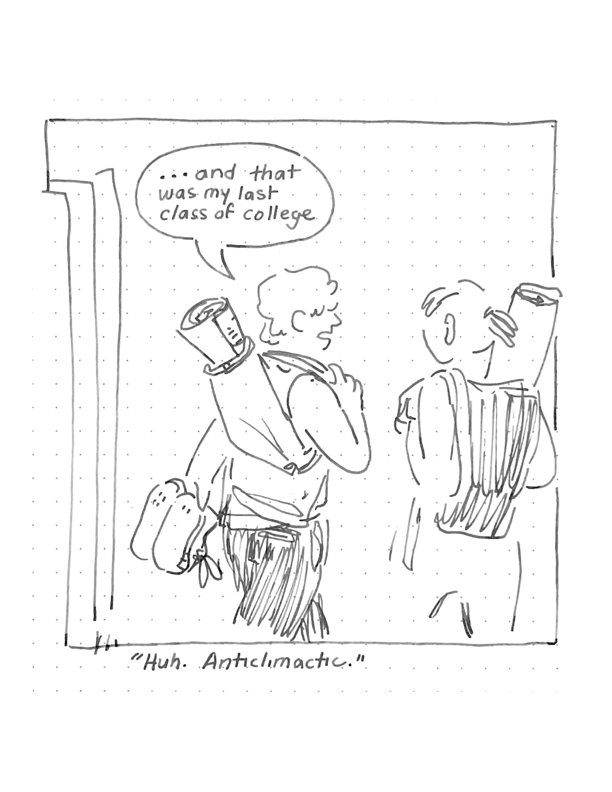 ...and that
was my last
class of college
"Huh. Anticlimactic."